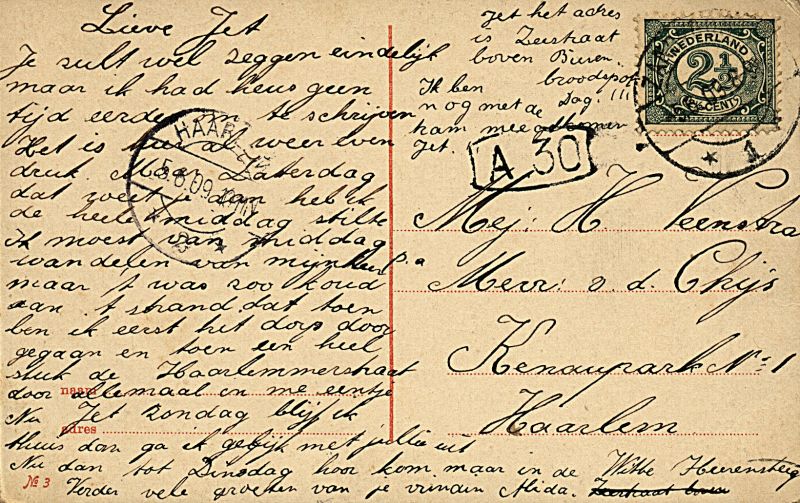 Lieve Jet
Je zult wel zeggen eindelijk
maar ik had heus geen
tijd eerder om te schrijven
Het is hier al weer even
druk. Maar Zaterdag
dat weet je dan heb ik
de heele middag stilte
ik moest van middag
wandelen van mijn
maar 't was zoo koud
aan 't strand dat toen
ben ik eerst het dorp door
gegaan en toen een heel
stuk de Haarlemmerstraat
door allemaal in me eentje
Nu Jet Zondag blijf ik
thuis dan ga ik gelijk met jullie uit
Nu dan tot Dinsdag hoor kom maar in de Witte Heerensteeg
Verder vele groeten van je vriendin Alida.
naam
adres
No 3
Jet het adres
is Zeestraat
boven Buren.
broodspot
Ik ben
nog met de Dag!!!
ham meegekomen
Jet.
HAARLEM
5.6.09
A 30
NEDERLAND
2½
CENT
1
Mej: H. Veenstra
p.a
Mevr: v. d. Chijs
Kenaupark No 1
Haarlem